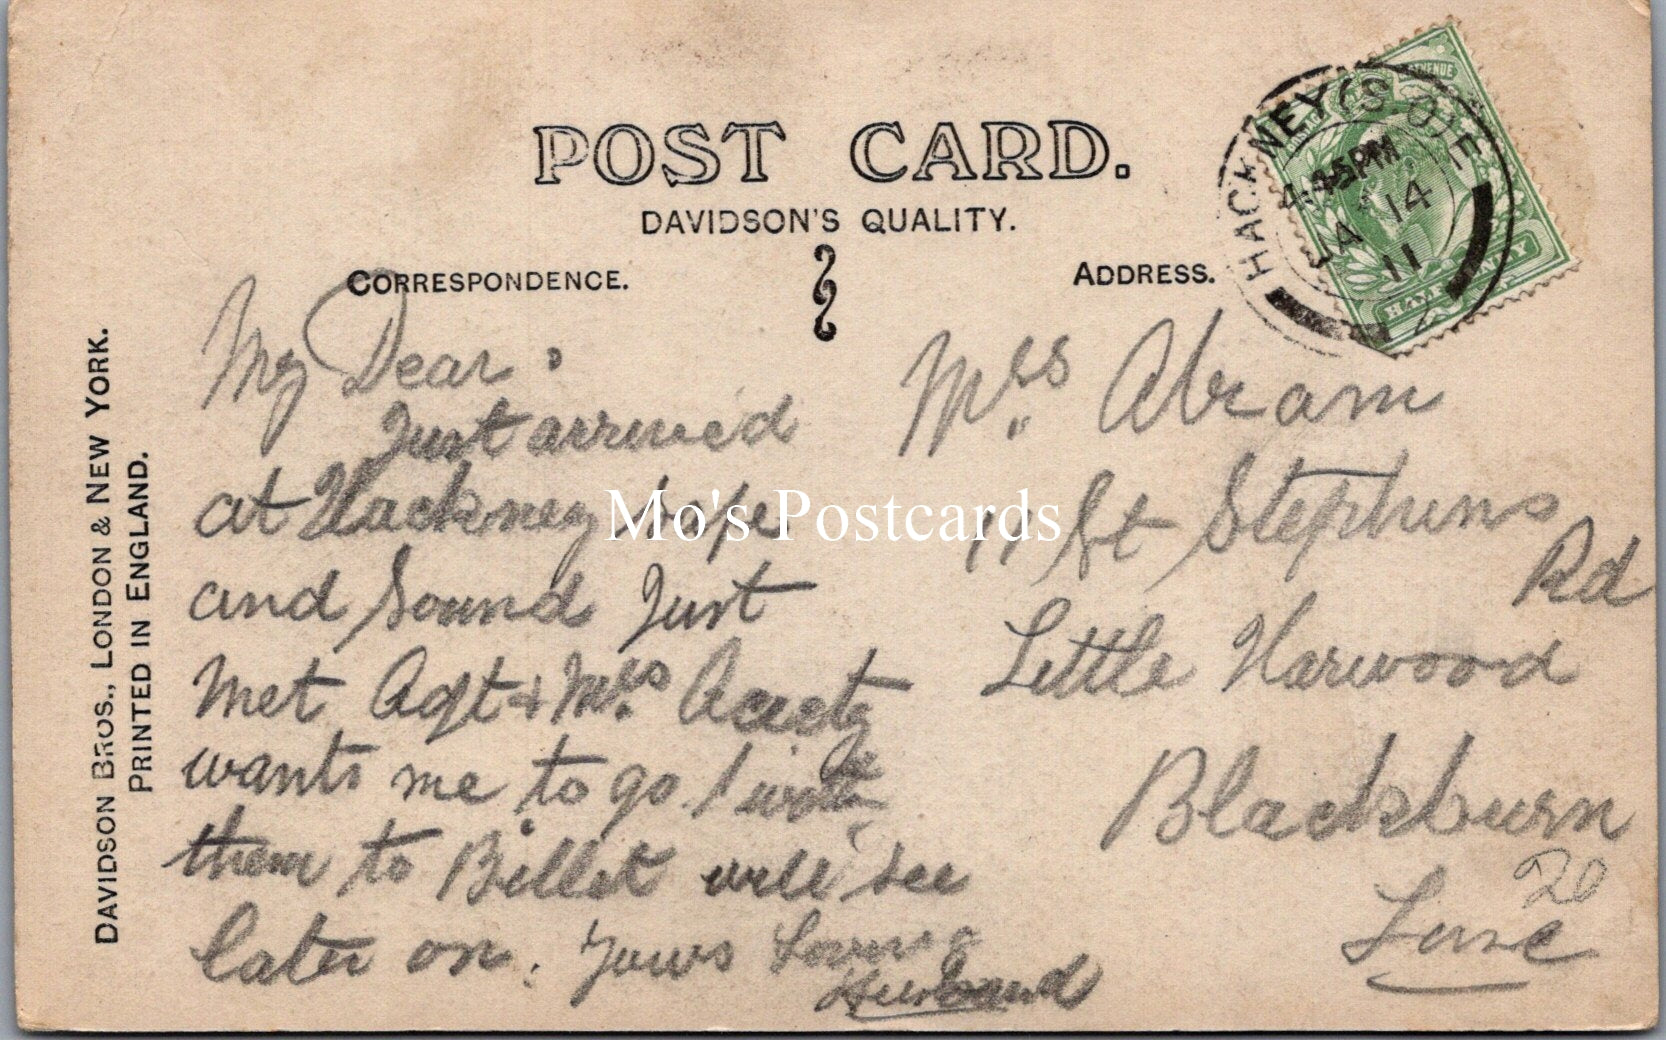 POST CARD.
DAVIDSON'S QUALITY.
CORRESPONDENCE.
ADDRESS.
DAVIDSON BROS., LONDON & NEW YORK.
PRINTED IN ENGLAND.
HACKNEY (S.O) E
4.45PM
JA 14
11
HALFPENNY
My Dear.
Just arrived
at Hackney safe
and Sound Just
Met Agt & Mrs
wants me to go
them to Billet will see
later on. Yours Loving
Husband
Mrs Abram
St Stephens
Rd
Little Harwood
Blackburn
20
Mo's Postcards